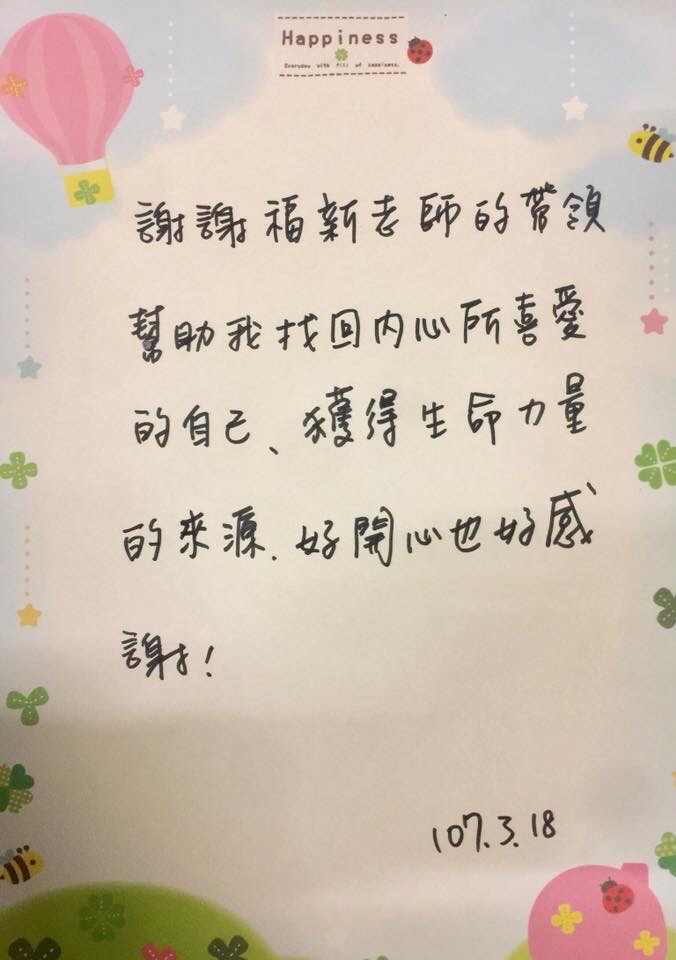 Happiness
Everyday with fill of happiness.
謝謝福新老師的帶領
幫助我找回內心所喜愛
的自己、獲得生命力量
的來源.好開心也好感
謝!
107.3.18